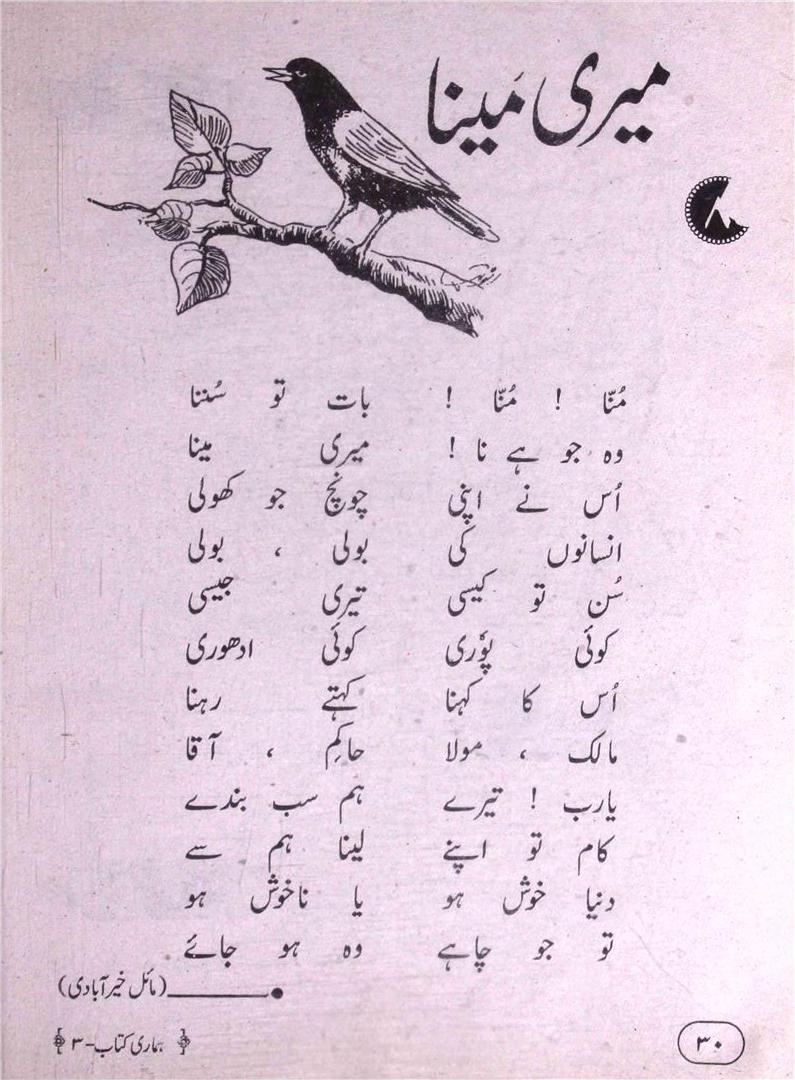 میری مَینا
۸
مُنّا ! مُنّا ! بات تو سُننا
وہ جو ہے نا ! میری مینا
اُس نے اپنی چونچ جو کھولی
انسانوں کی بولی ، بولی
سُن تو کیسی تیری جیسی
کوئی پوُری کوئی ادھوری
اُس کا کہنا کہتے رہنا
مالک ، مولا حاکِم ، آقا
یارب ! تیرے ہم سب بندے
کام تو اپنے لینا ہم سے
دنیا خوش ہو یا ناخوش ہو
تو جو چاہے وہ ہو جائے
(مائل خیرآبادی)
۳۰
ہماری کتاب-۳